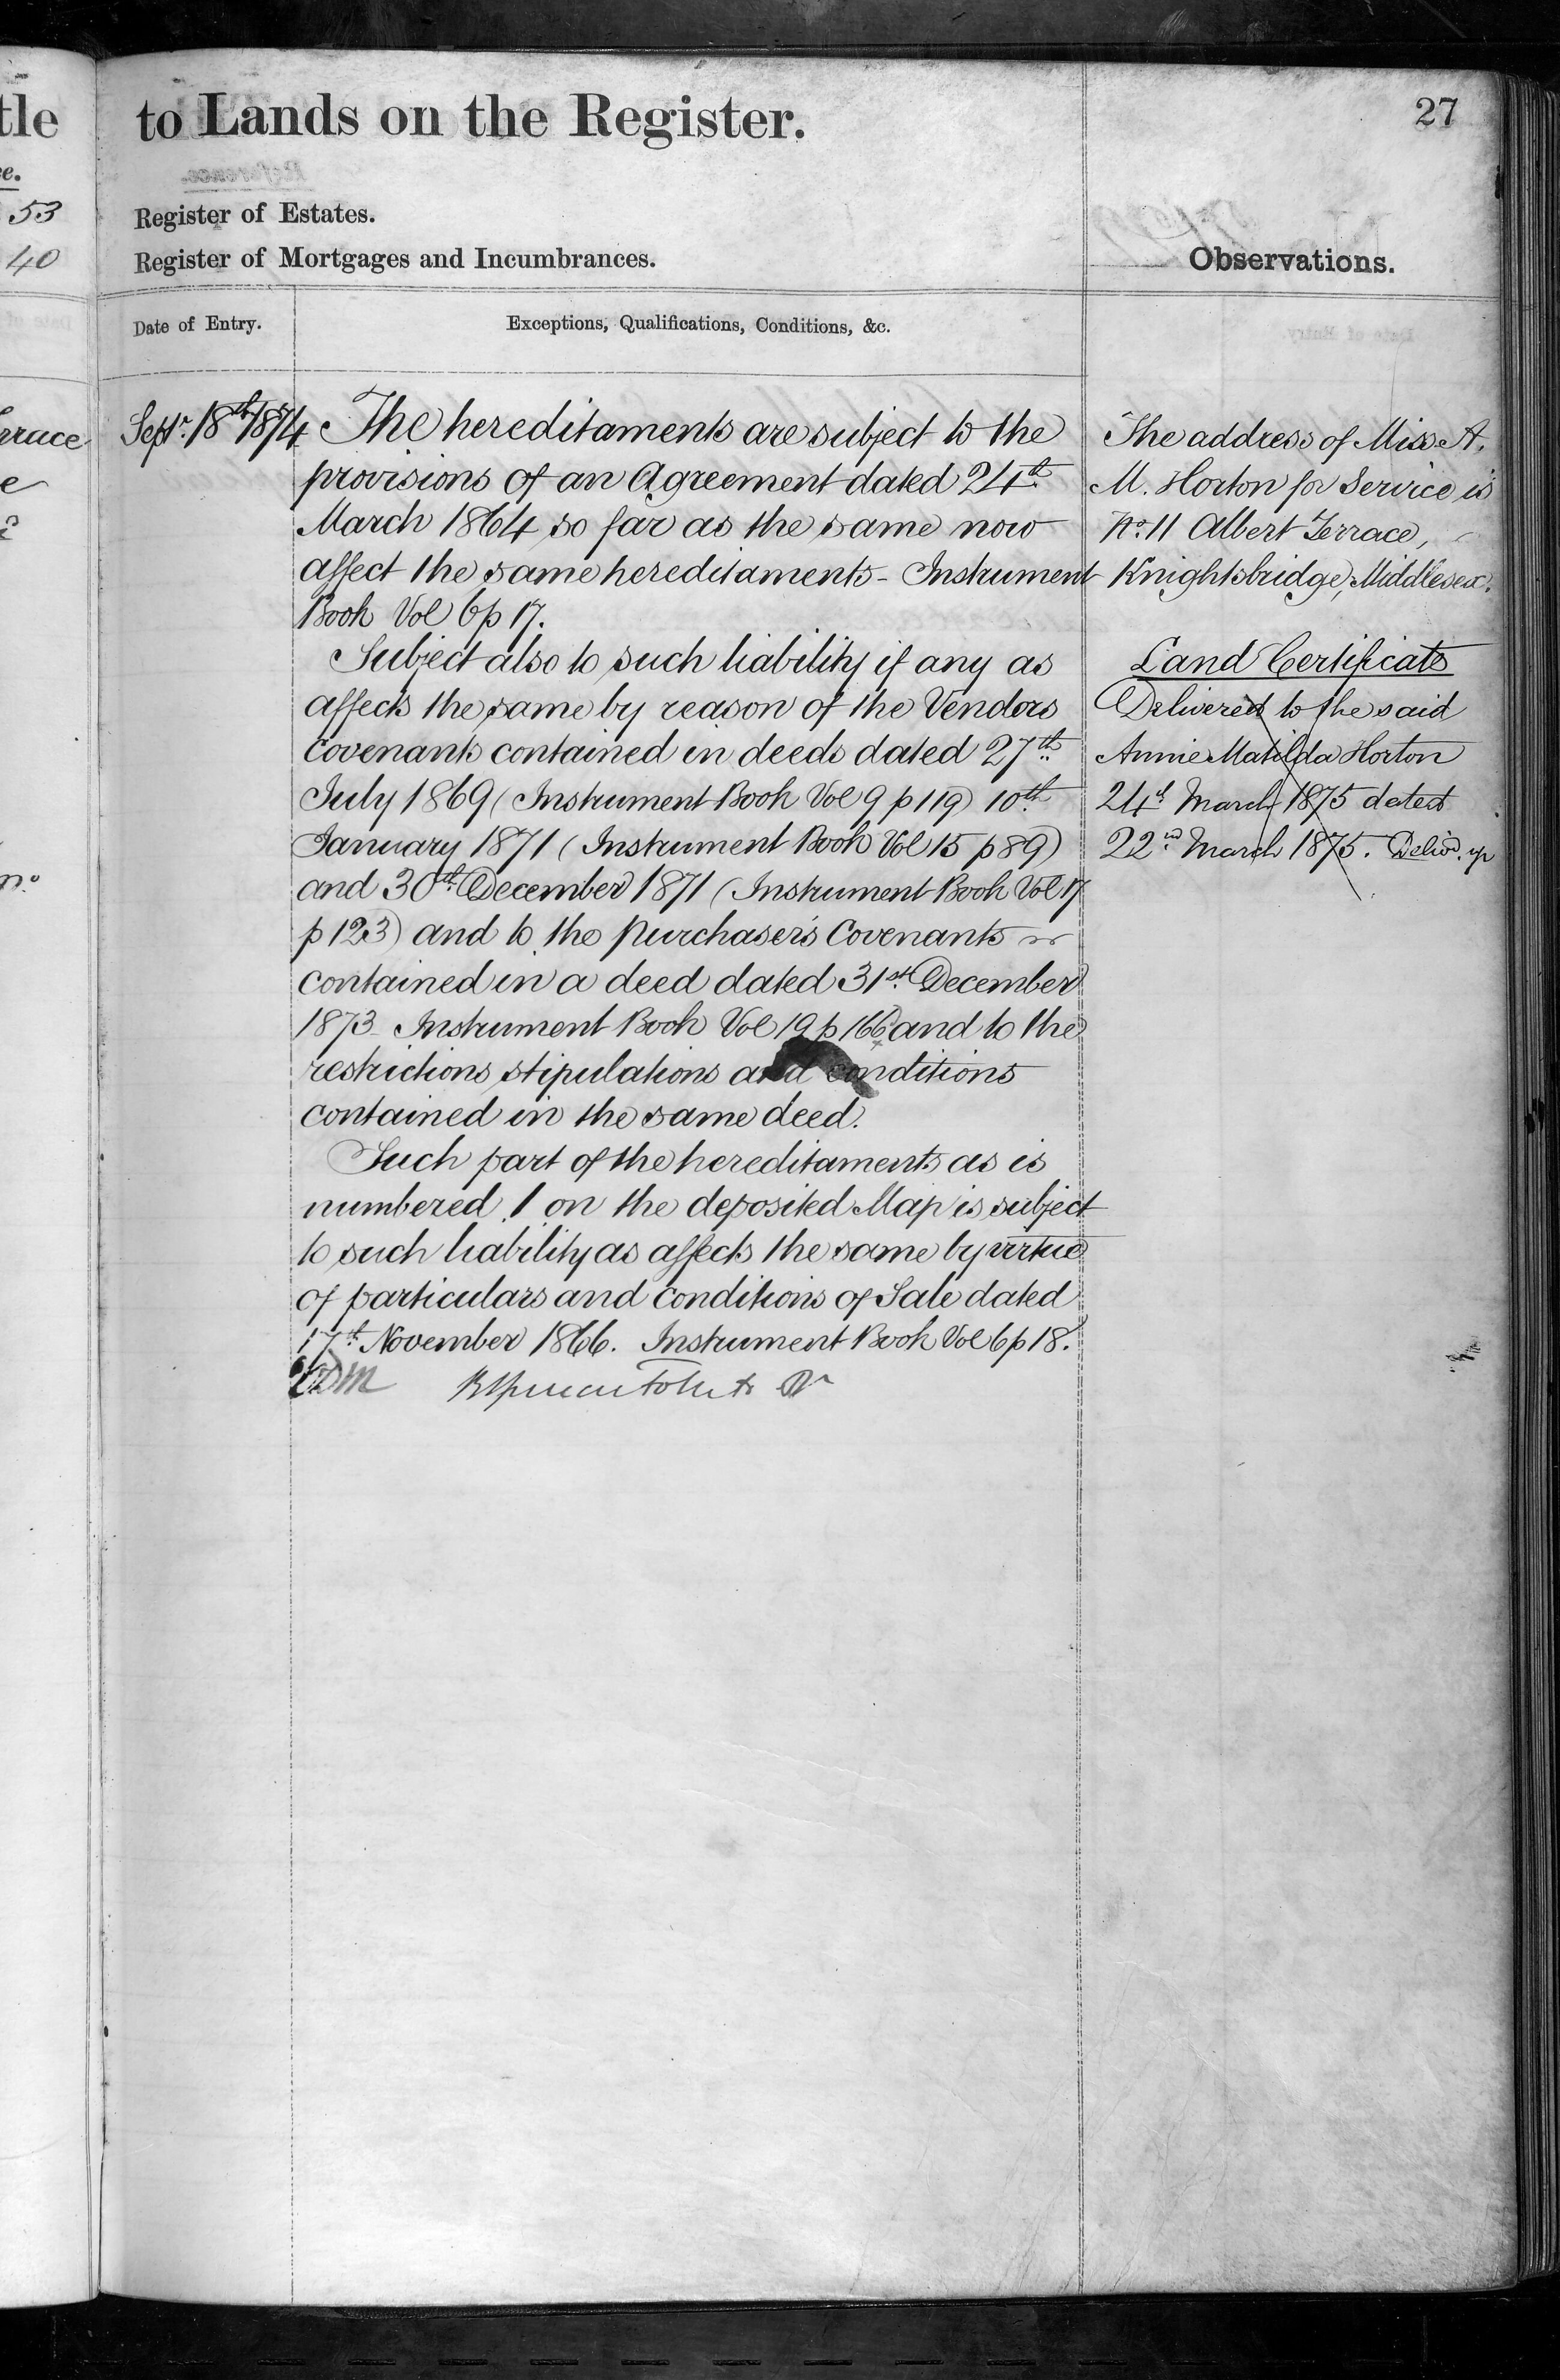 tle
e.
53
40
rrace
e
no.
to Lands on the Register.
27
Reference.
Register of Estates.
Register of Mortgages and Incumbrances.
Observations.
Date of Entry.
Exceptions, Qualifications, Conditions, &c.
Septr. 18th 1874
The hereditaments are subject to the
provisions of an Agreement dated 24th
March 1864 so far as the same now
affect the same hereditaments - Instrument
Book Vol 6 p 17.
Subject also to such liability if any as
affects the same by reason of the Vendors
Covenants contained in deeds dated 27th
July 1869 (Instrument Book Vol 9 p 119) 10th
January 1871 (Instrument Book Vol 15 p 89)
and 30th December 1871 (Instrument Book Vol 17
p 123) and to the purchasers Covenants
contained in a deed dated 31st December
1873 Instrument Book Vol 19 p 166 and to the
restrictions stipulations and conditions
contained in the same deed.
Such part of the hereditaments as is
numbered 1 on the deposited Map is subject
to such liability as affects the same by virtue
of particulars and conditions of Sale dated
17th November 1866. Instrument Book Vol 6 p 18.
The address of Miss A.
M. Horton for Service is
No. 11 Albert Terrace,
Knightsbridge, Middlesex.
Land Certificate
Delivered to the said
Annie Matilda Horton
24th March 1875 dated
22nd March 1875. Delivd. up